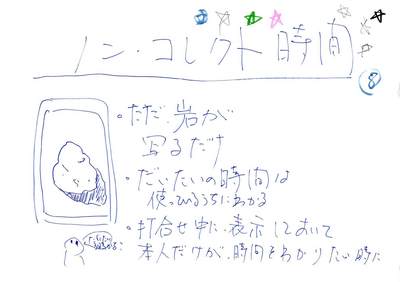 ノン・コレクト時間
⑧
・ただ岩が
写るだけ
・だいたいの時間は
使っているうちにわかる
・打合せ中に表示しておいて
本人だけが時間をわかりたい時に